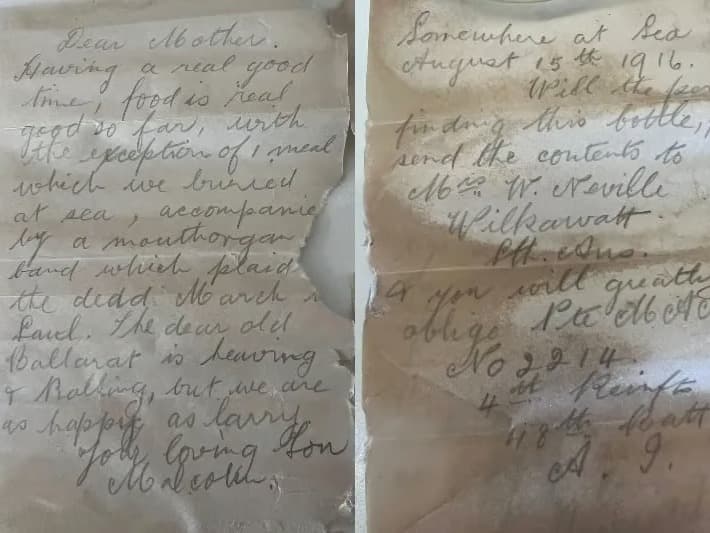 Dear Mother.
Having a real good
time, food is real
good so far, with
the exception of 1 meal
which we buried
at sea, accompanie
by a mouthorgan
band which plaid
the dedd March
Saul. The dear old
Ballarat is heaving
& Rolling, but we are
as happy as larry
Your loving Son
Malcolm.
Somewhere at Sea
August 15th 1916.
Will the per
finding this bottle,
send the contents to
Mrs W. Neville
Wilkawatt.
Sth. Aus.
& you will greatly
oblige Pte M A
No 2214.
4th Reinfts
48th Batt
A. I.